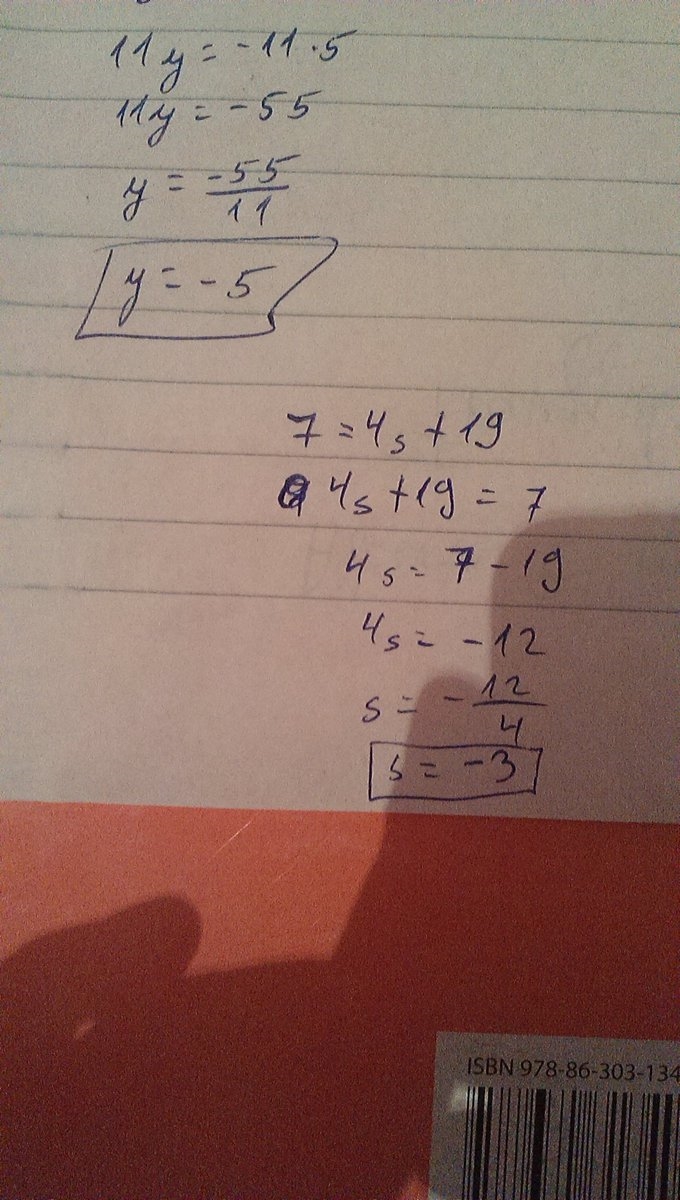 11y = -11·5
11y = -55
y = -55/11
y = -5
7 = 4s + 19
4s + 19 = 7
4s = 7 - 19
4s = -12
s = -12/4
s = -3
ISBN 978-86-303-134